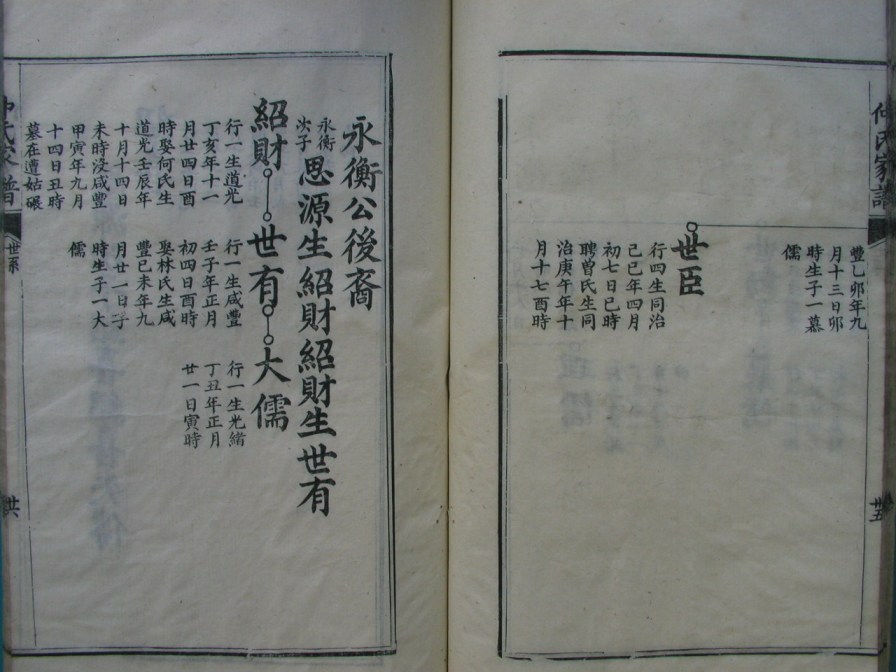 廿五
豐乙卯年九
月十三日卯
時生子一慕
儒
世臣
行四生同治
己巳年四月
初七日巳時
聘曾氏生同
治庚午年十
月十七酉時
永衡公後裔
永衡
次子
思源生紹財紹財生世有
紹財 世有 大儒
行一生道光
丁亥年十一
月廿四日酉
時娶何氏生
道光壬辰年
十月十四日
未時沒咸豐
甲寅年九月
十四日丑時
墓在遭姑碾
行一生咸豐
壬子年正月
初四日酉時
娶林氏生咸
豐己未年九
月廿一日子
時生子一大
儒
行一生光緒
丁丑年正月
廿一日寅時
氏家譜
世系
廿六